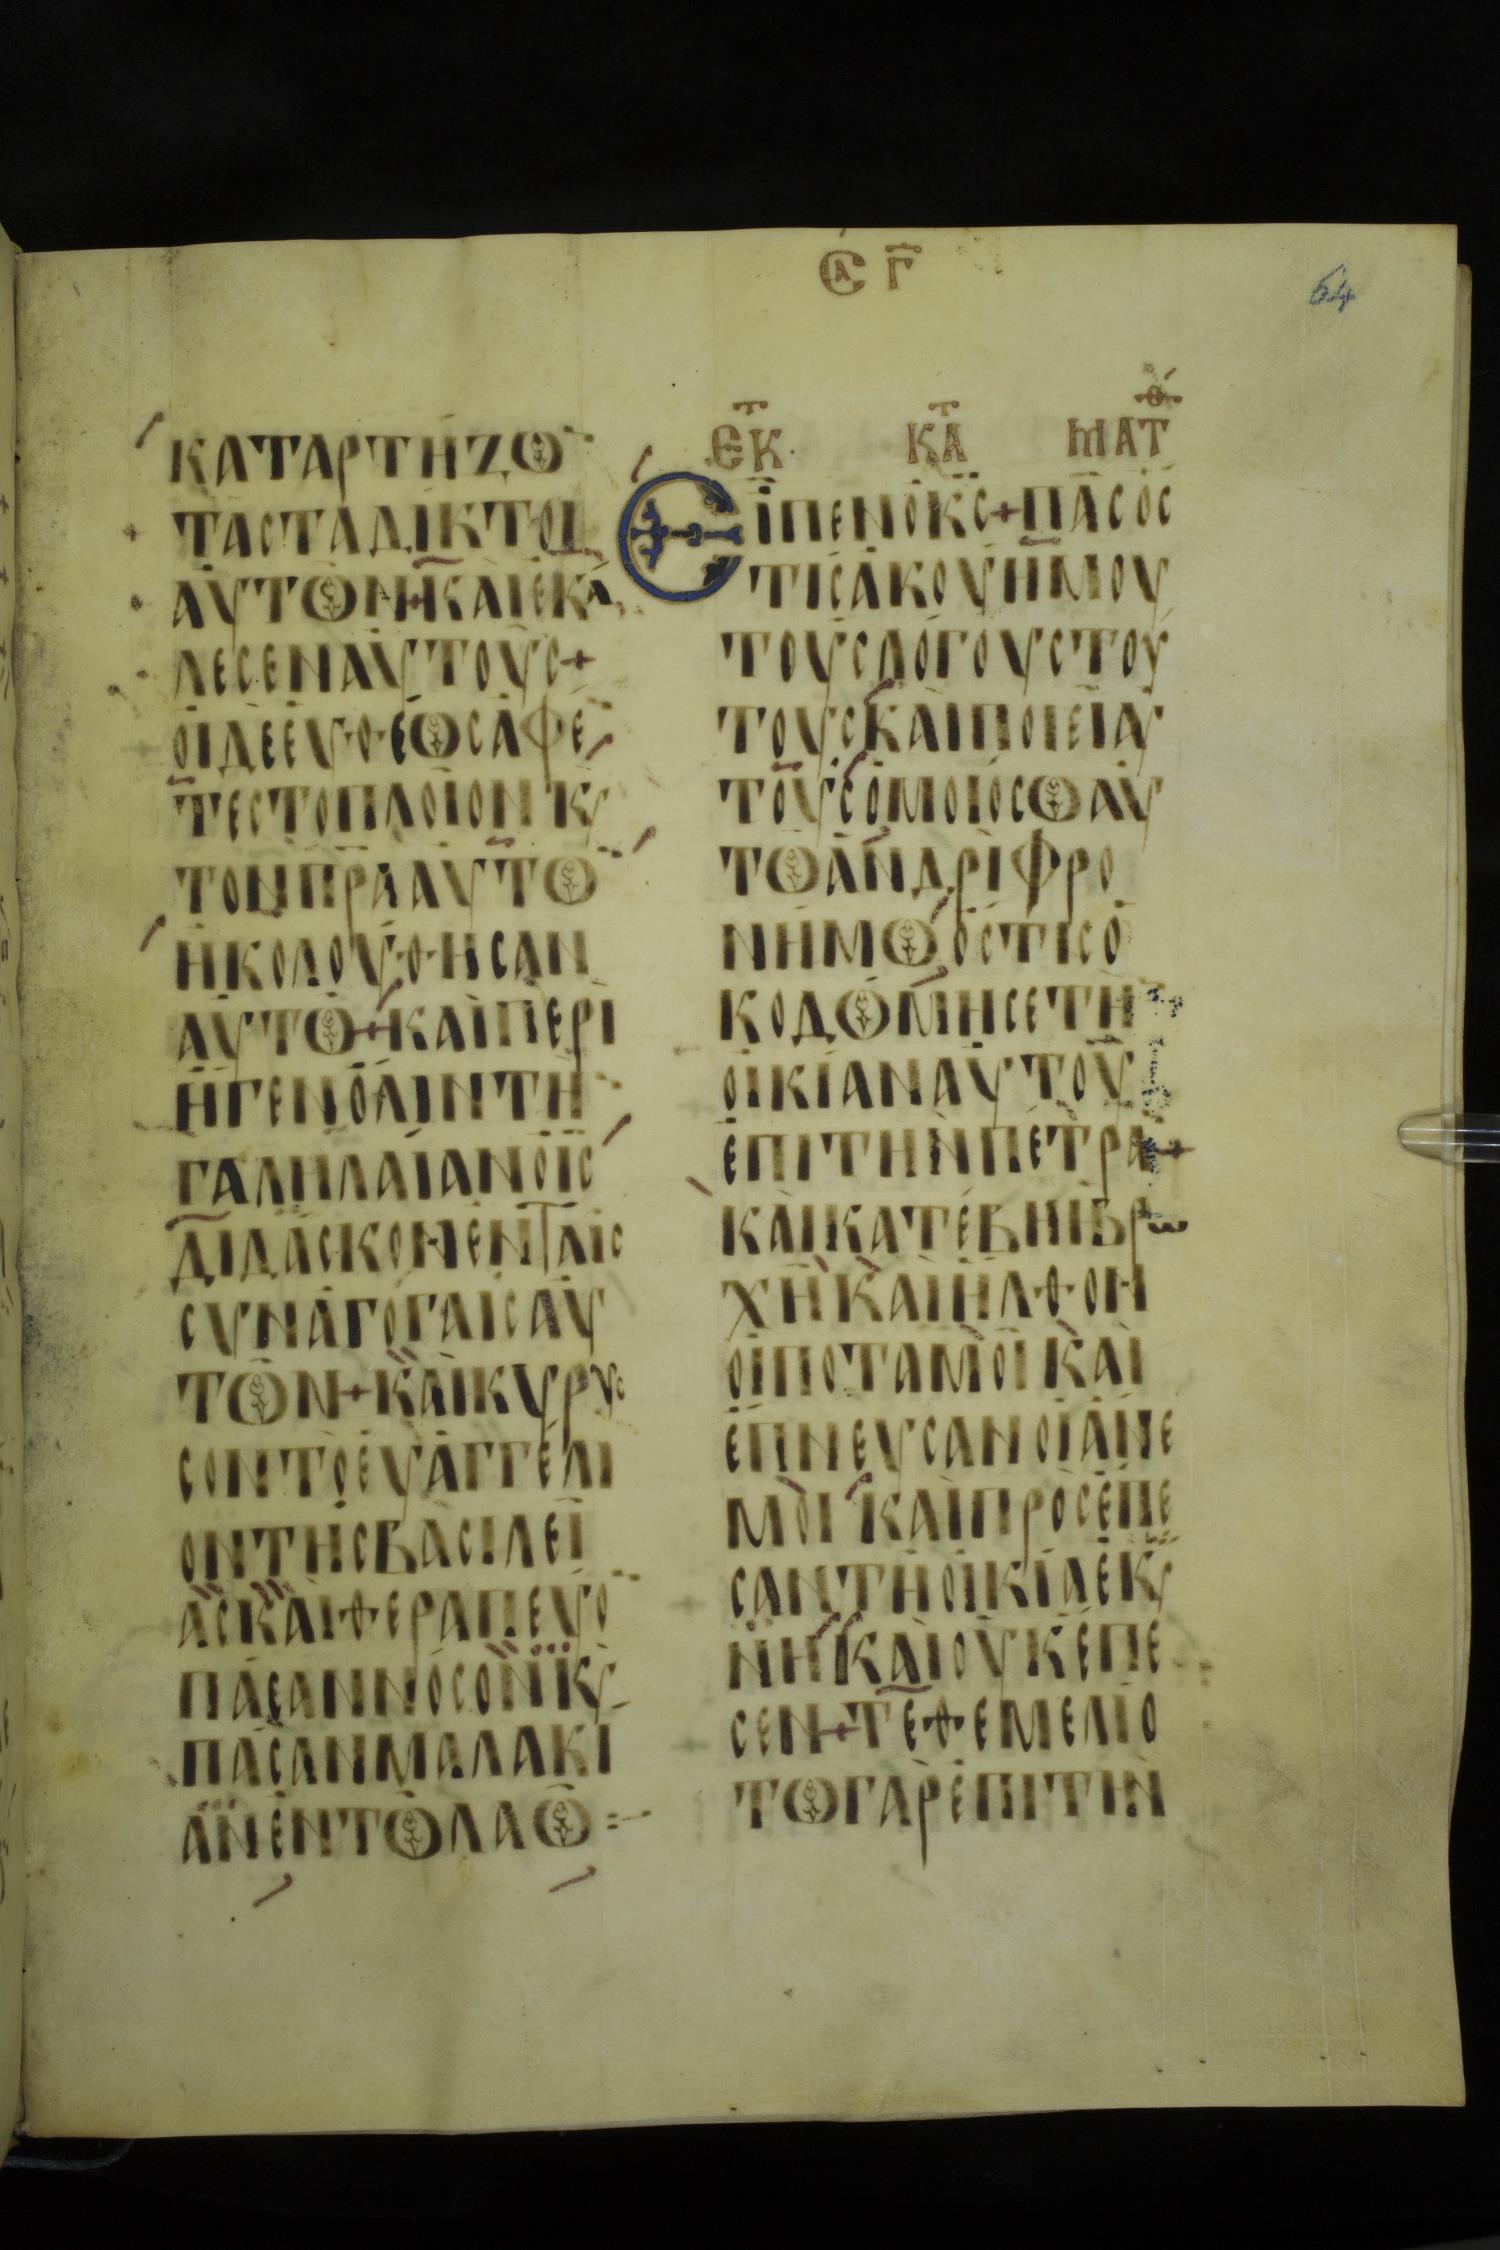 ϹΑ Γ
64
ΚΑΤΑΡΤΗΖΩ
ΤΑϹΤΑΔΙΚΤΟΙ
ΑΥΤΩΝ+ΚΑΙΕΚΑ
ΛΕϹΕΝΑΥΤΟΥϹ+
ΟΙΔΕΕΥΘΕΩϹΑΦΕ
ΤΕϹΤΟΠΛΟΙΟΝΚϚ
ΤΟΝΠΡΑΑΥΤΩ
ΗΚΟΛΟΥΘΗϹΑΝ
ΑΥΤΩ+ΚΑΙΠΕΡΙ
ΗΓΕΝΟΛΙΝΤΗ
ΓΑΛΗΛΑΙΑΝΟΙϹ
ΔΙΔΑϹΚΟΜΕΝΤΑΙϹ
ϹΥΝΑΓΟΓΑΙϹΑΥ
ΤΩΝ+ΚΑΙΚΥΡΥϹ
ϹΟΝΤΟΕΥΑΓΓΕΛΙ
ΟΝΤΗϹΒΑϹΙΛΕΙ
ΑϹΚΑΙΘΕΡΑΠΕΥΟ
ΠΑϹΑΝΝΟϹΟΝΚϚ
ΠΑϹΑΝΜΑΛΑΚΙ
ΑΝΕΝΤΩΛΑΩ
ΕΚ ΚΑΤ ΜΑΤΘ
ΕΙΠΕΝΟΚϹ+ΠΑϹΟϹ
ΤΙϹΑΚΟΥΗΜΟΥ
ΤΟΥϹΛΟΓΟΥϹΤΟΥ
ΤΟΥϹΚΑΙΠΟΙΕΙΑΥ
ΤΟΥϹΟΜΟΙΟϹΩΑΥ
ΤΩΑΝΔΡΙΦΡΟ
ΝΗΜΩΟϹΤΙϹΟ
ΚΟΔΩΜΗϹΕΤΗ
ΟΙΚΙΑΝΑΥΤΟΥ
ΕΠΙΤΗΝΠΕΤΡΑ+
ΚΑΙΚΑΤΕΒΗΙΒΡ
ΧΗΚΑΙΗΛΘΟΝ
ΟΙΠΟΤΑΜΟΙΚΑΙ
ΕΠΝΕΥϹΑΝΟΙΑΝΕ
ΜΟΙΚΑΙΠΡΟϹΕΠΕ
ϹΑΝΤΗΟΙΚΙΑΕΚϚ
ΝΗΚΑΙΟΥΚΕΠΕ
ϹΕΝ+ΤΕΘΕΜΕΛΙΟ
ΤΩΓΑΡΕΠΙΤΙΝ